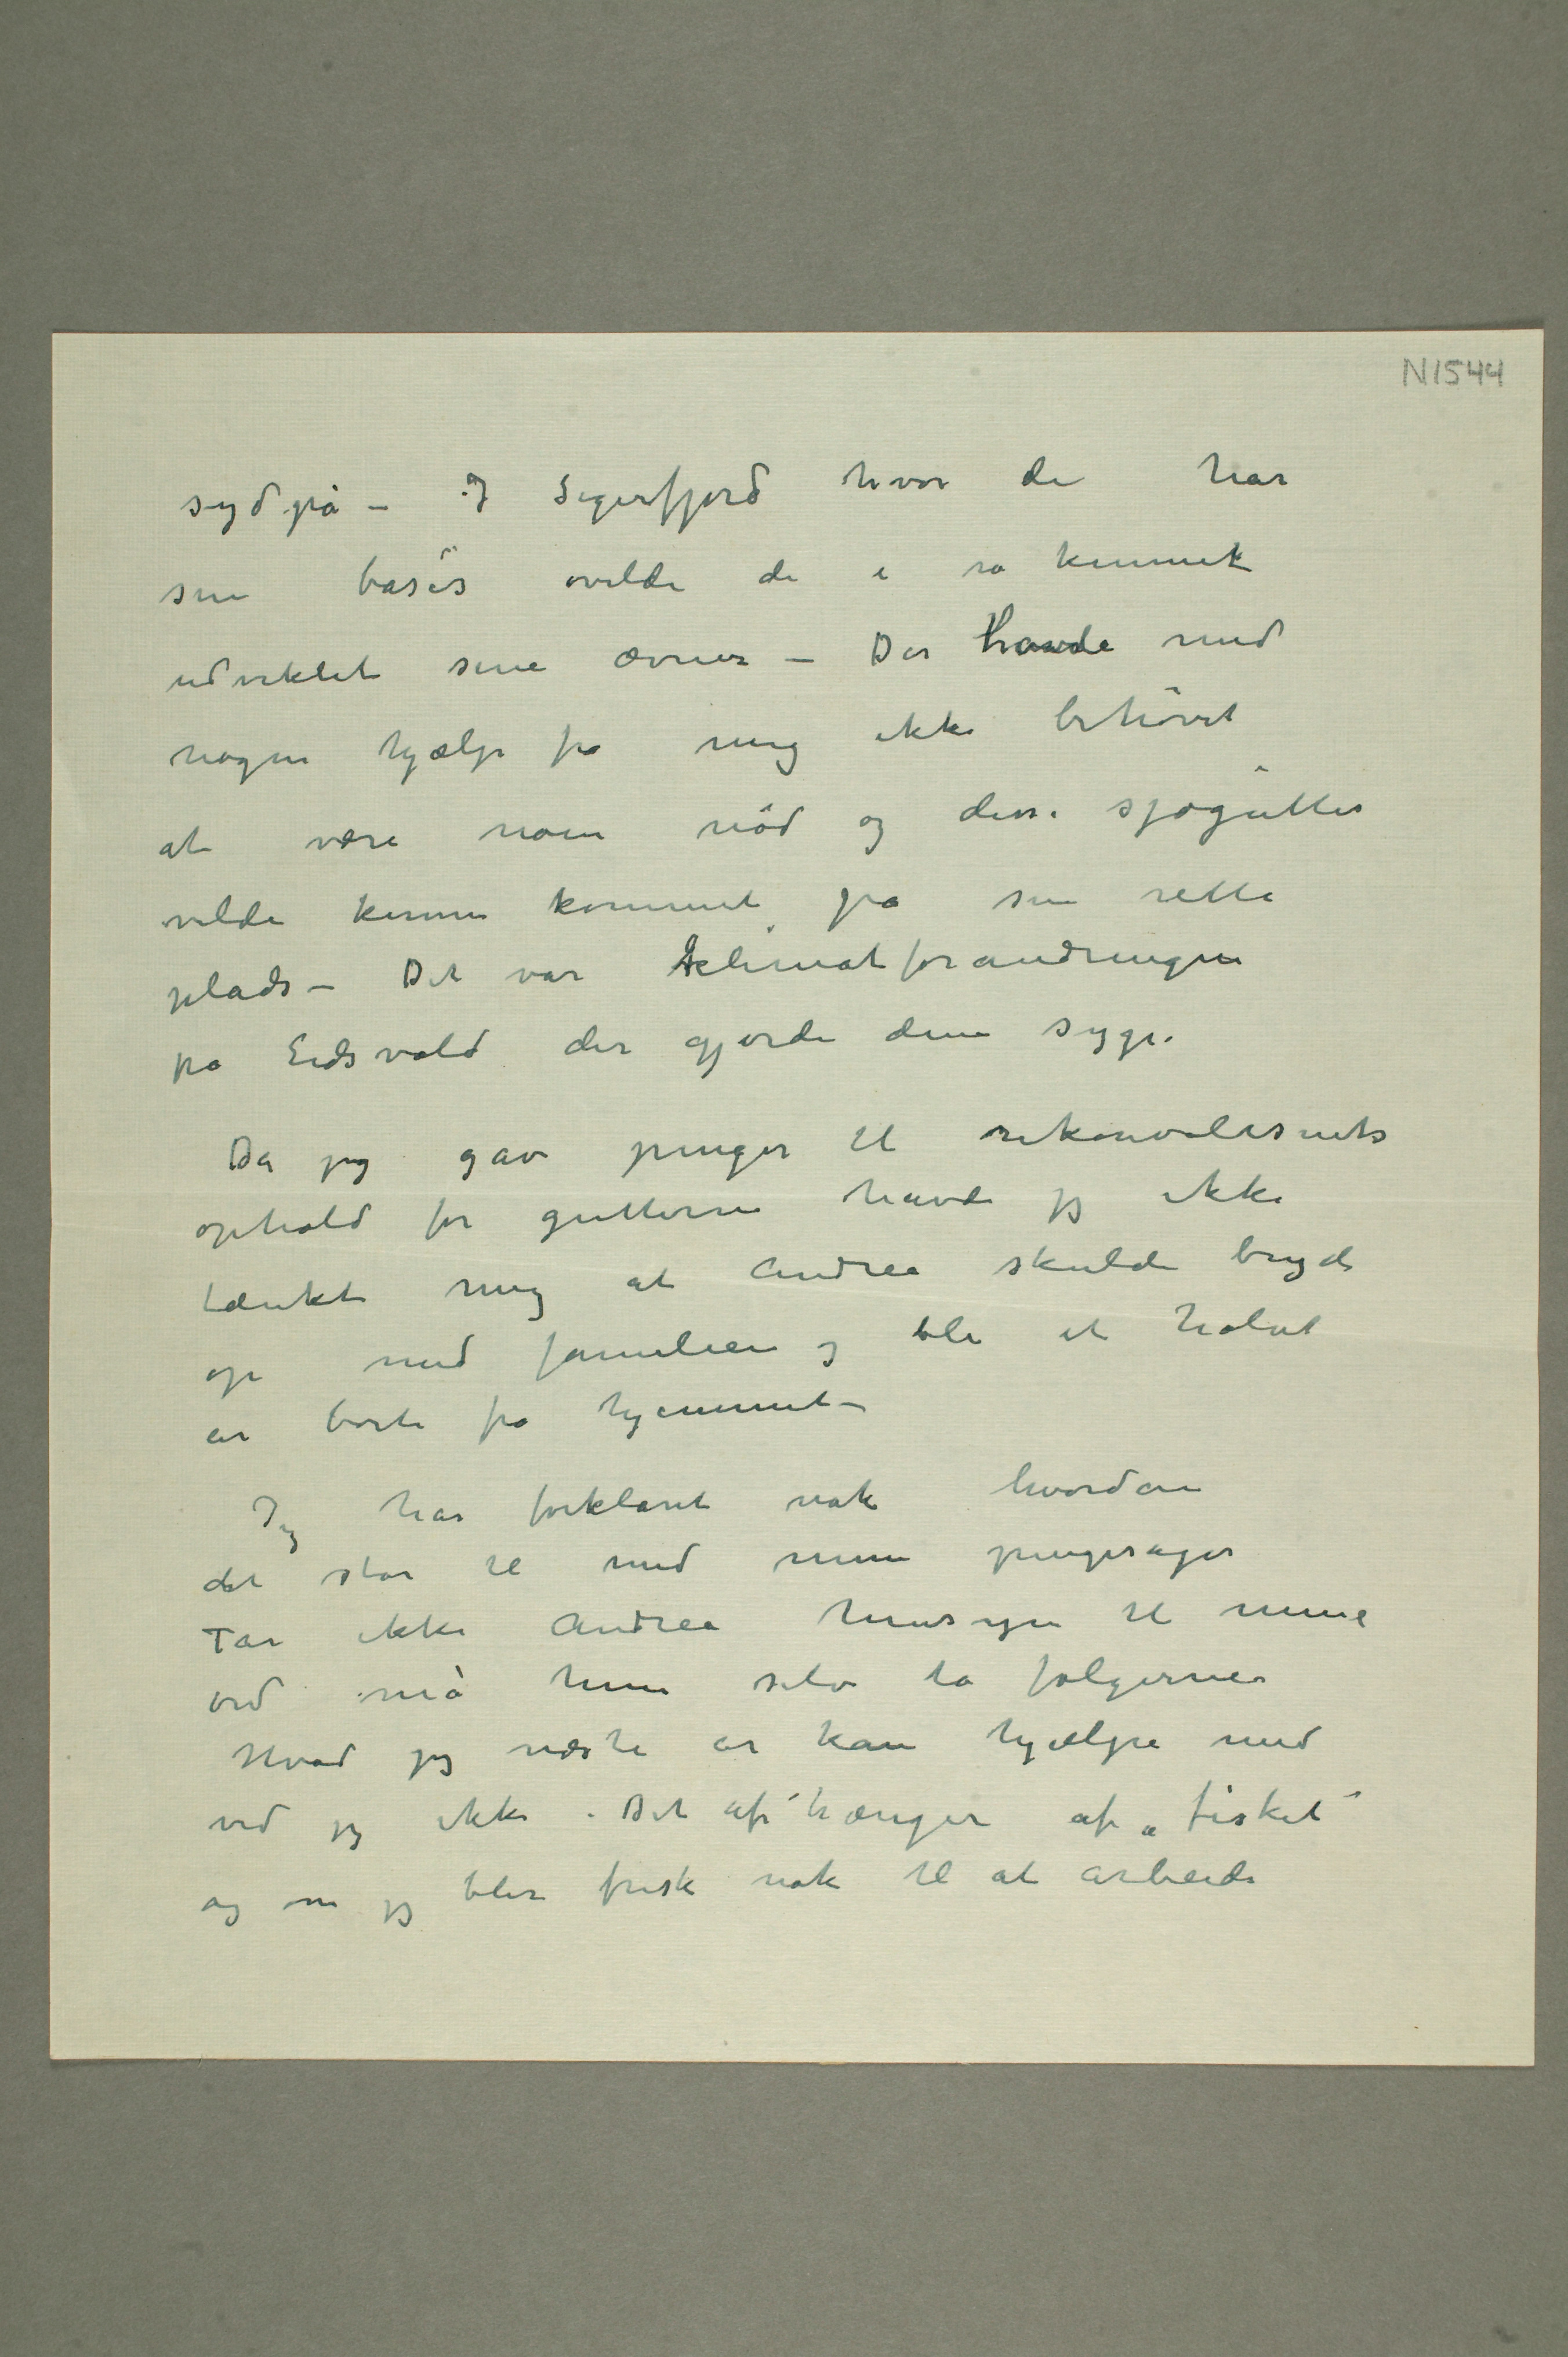 N1544
sydpå – I Sigerfjord hvor de har
sin basis vilde de i ro kunnet
udviklet sine ævner – Der havde med
nogen hjælp fra mig ikke behøvet
at være noen nød og disse sjøgutter
vilde kunne kommet på sin rette
plads – Det var klimatforandringen
på Eidsvold der gjorde dem syge.
Da jeg gav penger til rekonvalesents
ophold for gutterne havde jeg ikke
tænkt mig at Andrea skulde bryde
op med familien og bli et halvt
år borte fra hjemmet –
Jeg har forklaret nok hvordan
det står til med mine pengesager
Tar ikke Andrea hensyn til mine
ord må hun selv ta følgerne
Hvad jeg næste år kan hjælpe med
ved jeg ikke. Det afhænger af „fisket“
og om jeg blir frisk nok til at arbeide